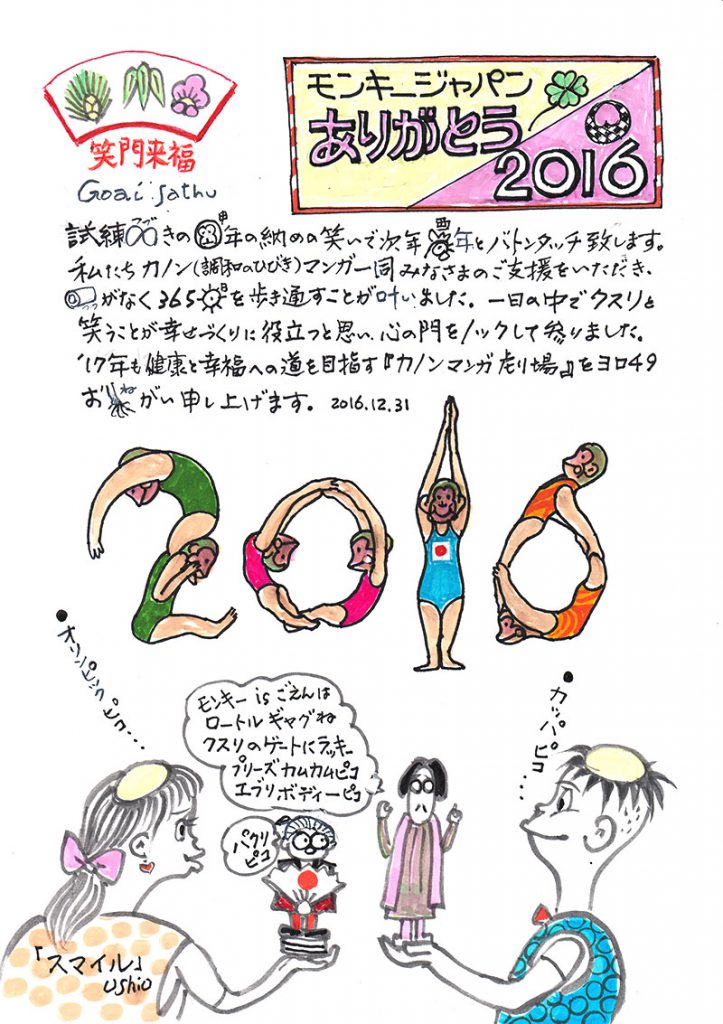 モンキージャパン
ありがとう
2016
笑門来福
Goaisathu
試練ツヅきの申年の納めの笑いで次年酉年とバトンタッチ致します。
私たちカノン(調和のひびき)マンガ一同みなさまのご支援をいただき、
がなく365日を歩き通すことが叶いました。一日の中でクスリと
笑うことが幸せづくりに役立つと思い、心の門をノックして参りました。
'17年も健康と幸福への道を目指す『カノンマンガ劇場』をヨロ49
おねがい申し上げます。2016.12.31
2016
・オリンピックピコ…
モンキー isごえんは
ロートルギャグね
クスリのゲートにラッキー
プリーズカムカムピコ
エブリボディーピコ
・カッパピコ…
パクリ
ピコ
「スマイル」
Ushio